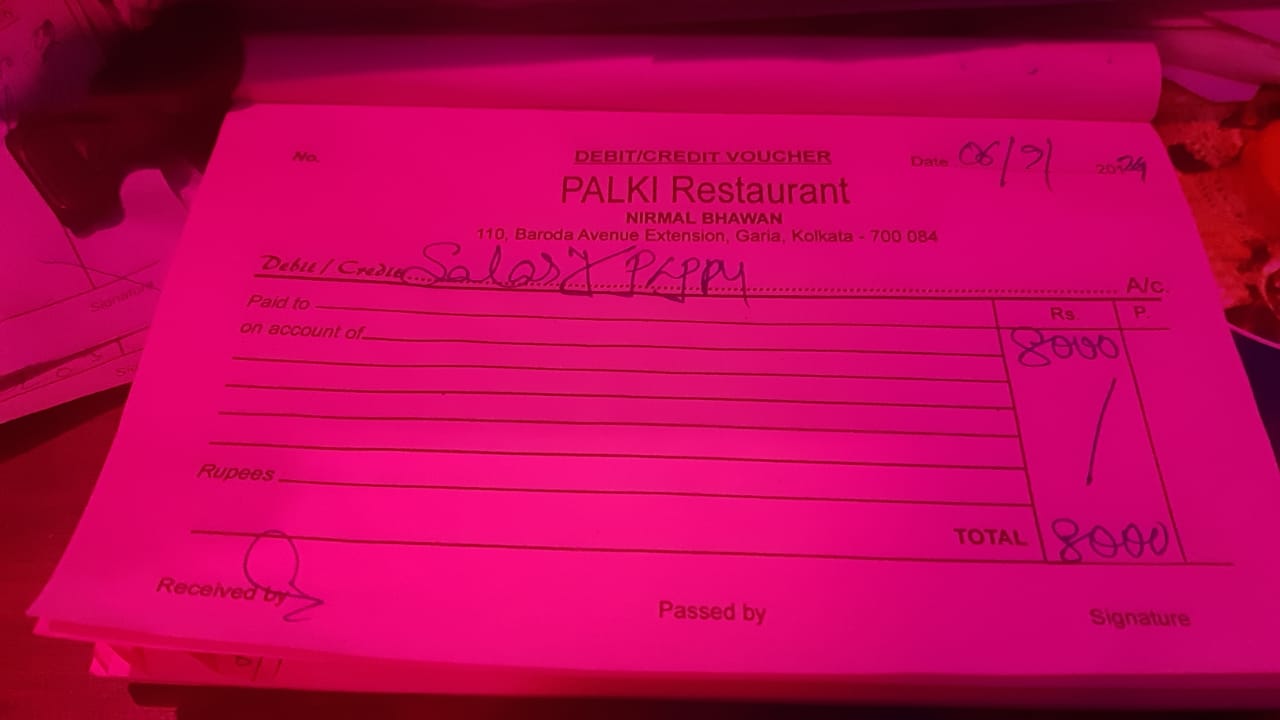 No.
DEBIT/CREDIT VOUCHER
Date 06/9/ 2024
PALKI Restaurant
NIRMAL BHAWAN
110, Baroda Avenue Extension, Garia, Kolkata - 700 084
Debit / Credit Salary A/c.
Paid to Rs. P.
on account of 8000
Rupees
TOTAL 8000
Received by Passed by Signature
Signature